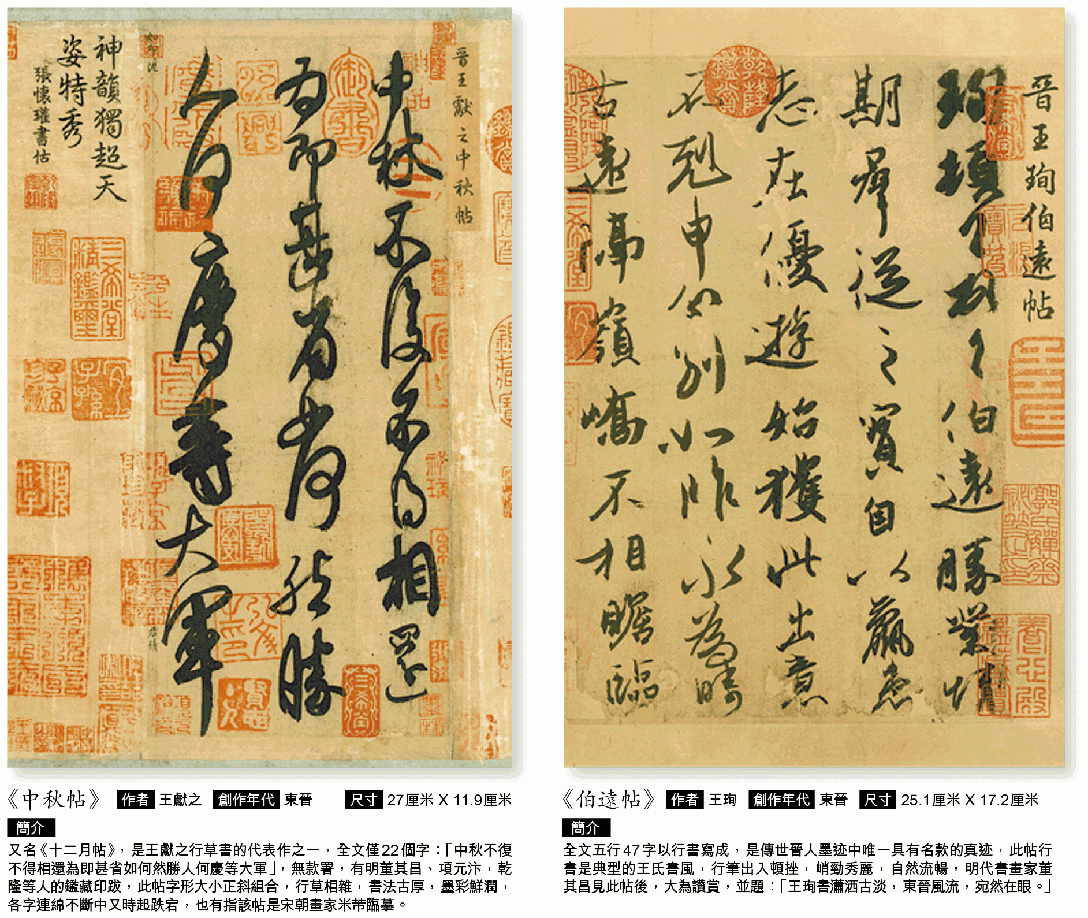 晉王獻之中秋帖
中秋不復不得相還
為即甚省如何然勝
人何慶等大軍
神韻獨超天
姿特秀
張懷瓘書估
三希堂精鑑璽
宜子孫
晉王珣伯遠帖
珣頓首頓首伯遠勝業情
期群從之寶自以羸患
志在優遊始獲此出意
不剋申分別如昨永為疇
古遠隔嶺嶠不相瞻臨
《中秋帖》 作者 王獻之 創作年代 東晉 尺寸 27厘米 X 11.9厘米
簡介
又名《十二月帖》,是王獻之行草書的代表作之一,全文僅22個字:「中秋不復
不得相還為即甚省如何然勝人何慶等大軍」,無款署,有明董其昌、項元汴,乾
隆等人的鑑藏印跋,此帖字形大小正斜組合,行草相雜,書法古厚,墨彩鮮潤,
各字連綿不斷中又時起跌宕,也有指該帖是宋朝畫家米芾臨摹。
《伯遠帖》 作者 王珣 創作年代 東晉 尺寸 25.1厘米 X 17.2厘米
簡介
全文五行47字以行書寫成,是傳世晉人墨迹中唯一具有名款的真迹,此帖行
書是典型的王氏書風,行筆出入頓挫,峭勁秀麗,自然流暢,明代書畫家董
其昌見此帖後,大為讚賞,並題:「王珣書瀟洒古淡,東晉風流,宛然在眼。」